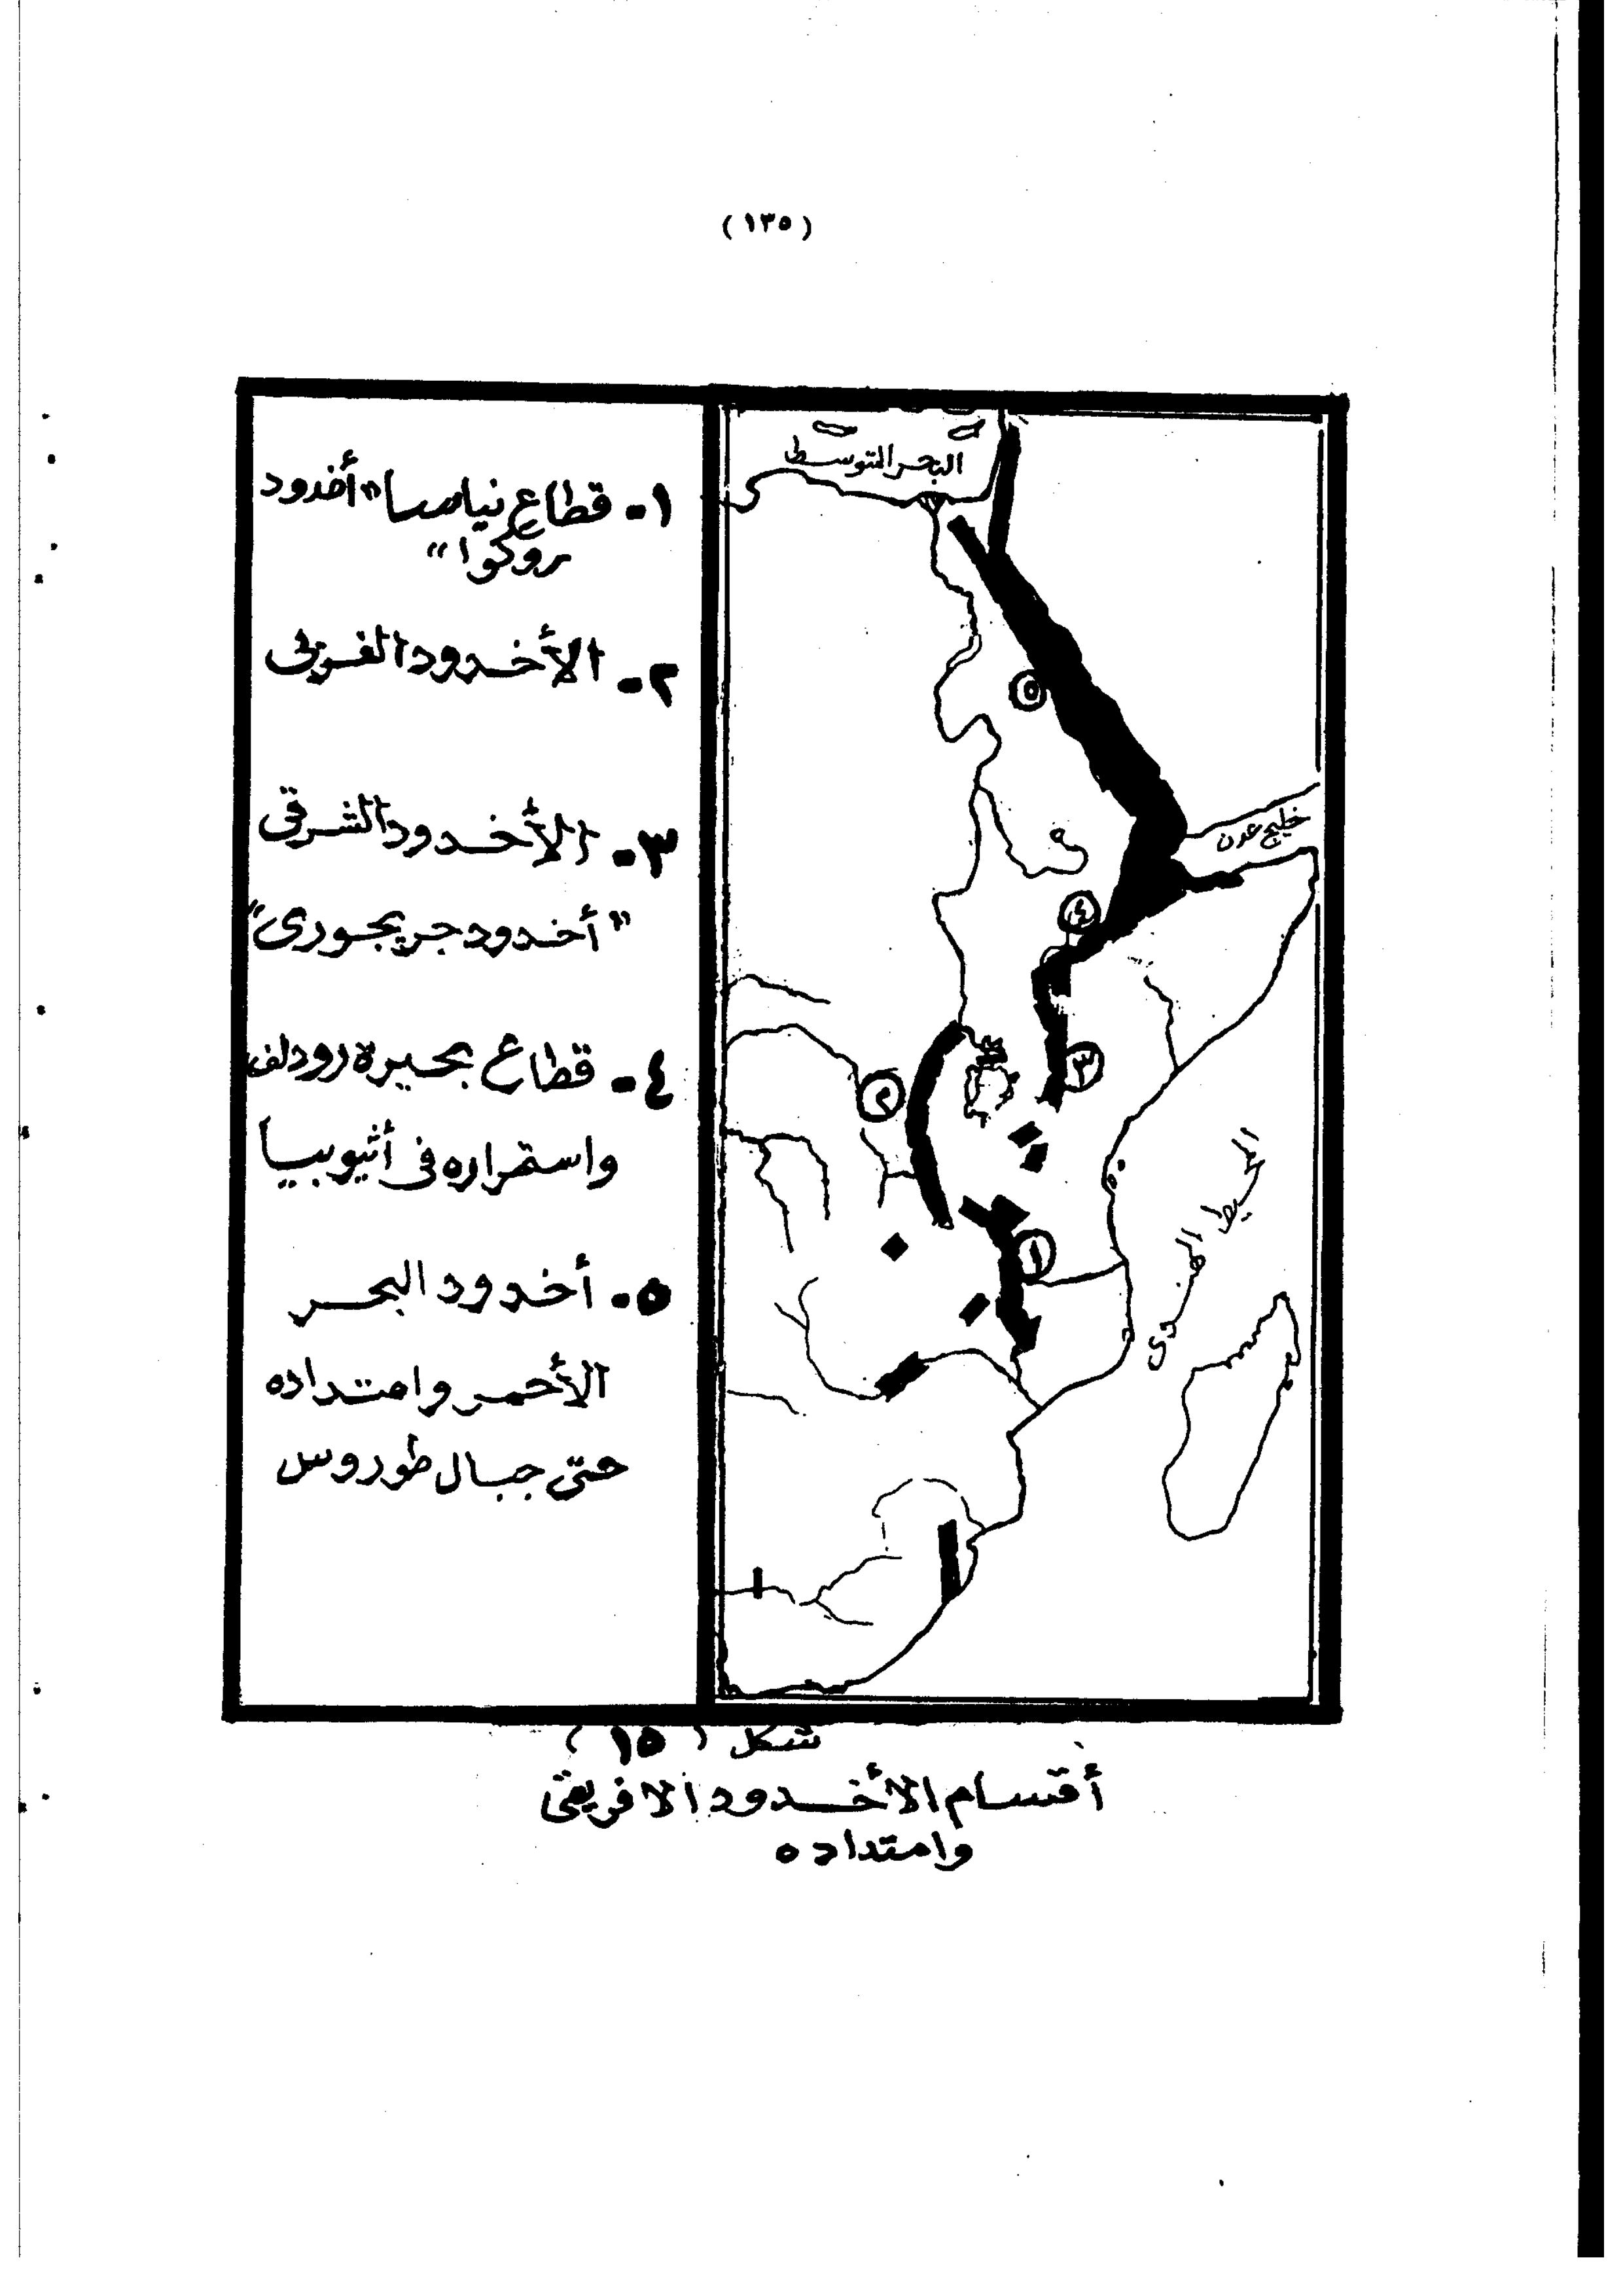 (١٣٥)
١- قطاع نياسا "أخدود
روكوا"
٢- الأخدود الغربى
٣- الأخدود الشرقى
"أخدود جريجورى"
٤- قطاع بحيرة رودلف
واستمراره فى أثيوبيا
٥- أخدود البحر
الأحمر وامتداده
حتى جبال طوروس
البحر المتوسط
٥
خليج عدن
٤
٣
٢
١
المحيط الهندى
شكل (١٥)
أقسام الأخدود الافريقى
وامتداده